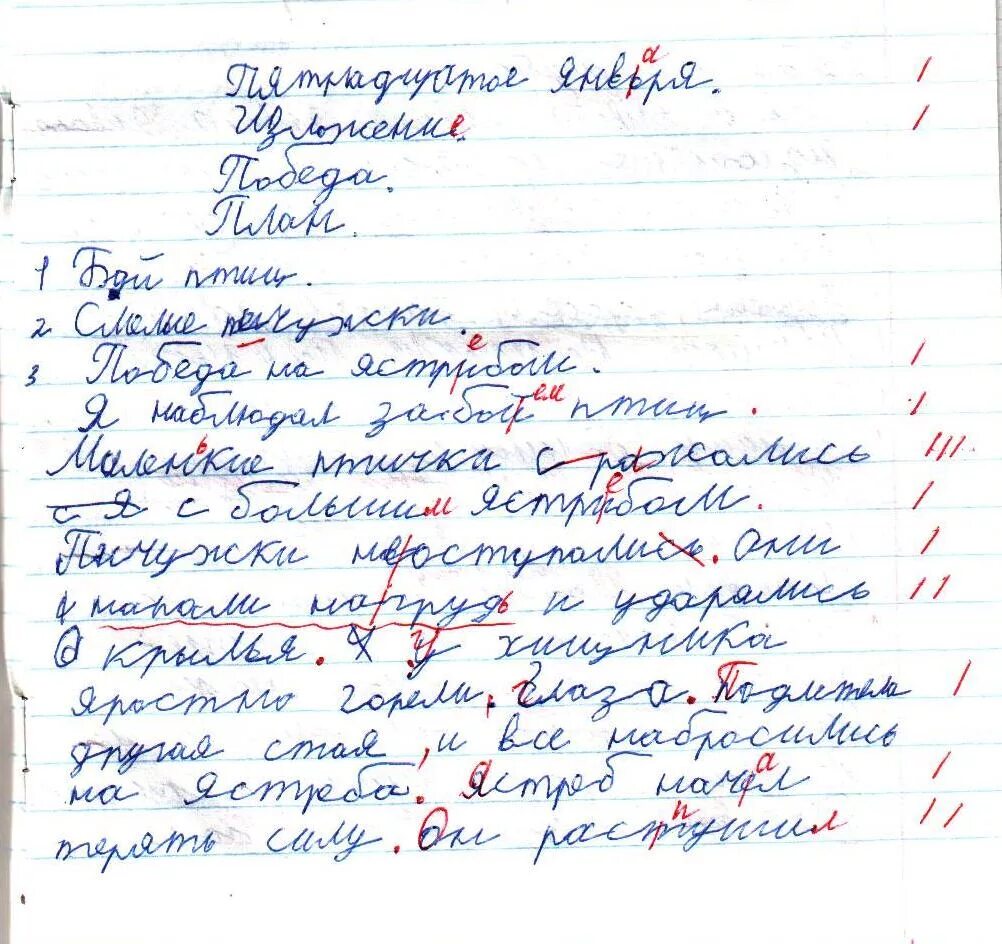 Пятнадцатое января.
Изложение.
Победа.
План.
1 Бой птиц.
2 Смелые пичужки.
3 Победа на ястребом.
Я наблюдал забоем птиц.
Маленькие птички сражались
с большим ястребом.
Пичужки не оступали. Они
напали на грудь и ударялись
О крылья. У хищника
яростно горели глаза. Подлетела
другая стая, и все набросились
на ястреба. Ястреб начал
терять силу. Он распушил